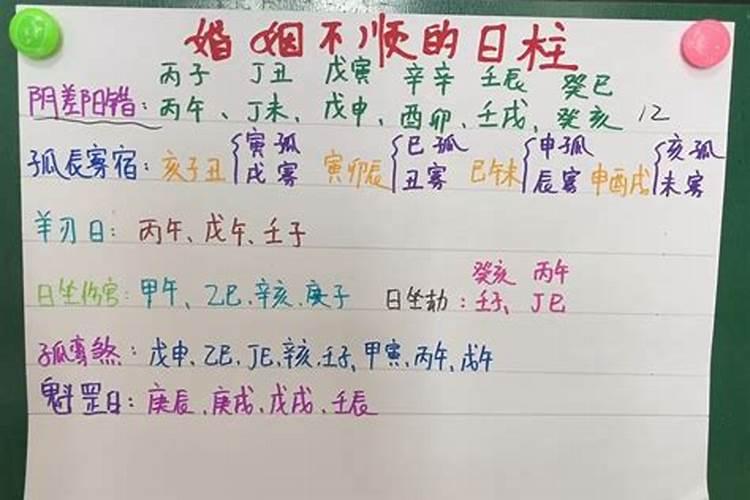 婚姻不顺的日柱
丙子 丁丑 戊寅 辛辛 壬辰 癸巳
阴差阳错：丙午、丁未、戊申、酉卯、壬戌、癸亥 12
孤辰寡宿：亥子丑{寅孤 寅卯辰{巳孤 巳午未{申孤 申酉戌{亥孤
戌寡 丑寡 辰寡 未寡
羊刃日：丙午、戊午、壬子
癸亥 丙午
日坐伤官：甲午、乙巳、辛亥、庚子 日坐劫：壬子、丁巳
孤鸾煞：戊申、乙巳、丁巳、辛亥、壬子、甲寅、丙午、戊午
魁罡日：庚辰、庚戌、戊戌、壬辰